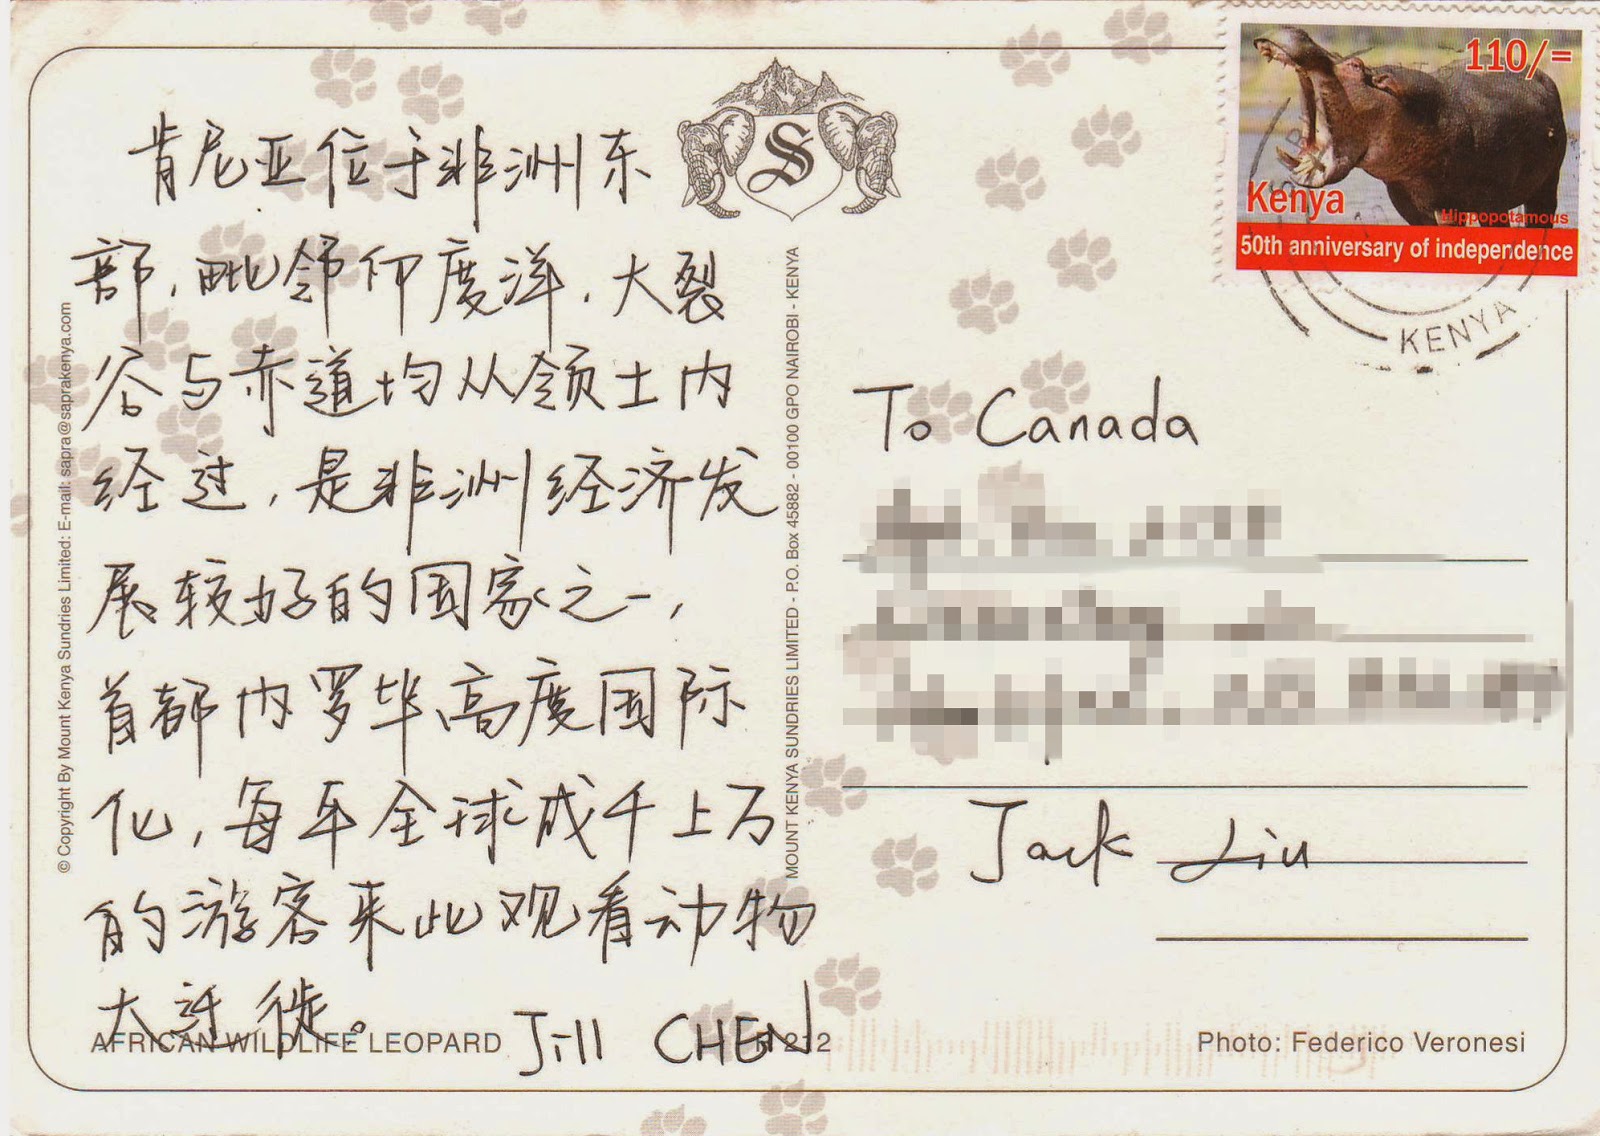 肯尼亚位于非洲东
部，毗邻印度洋，大裂
谷与赤道均从领土内
经过，是非洲经济发
展较好的国家之一，
首都内罗毕高度国际
化，每年全球成千上万
的游客来此观看动物
大迁徙。
Jill CHEN
AFRICAN WILDLIFE LEOPARD
212
© Copyright By Mount Kenya Sundries Limited: E-mail: sapra@saprakenya.com
S
MOUNT KENYA SUNDRIES LIMITED - P.O. Box 45882 - 00100 GPO NAIROBI - KENYA
110/=
Kenya
Hippopotamous
50th anniversary of independence
KENYA
To Canada
Jack Liu
Photo: Federico Veronesi